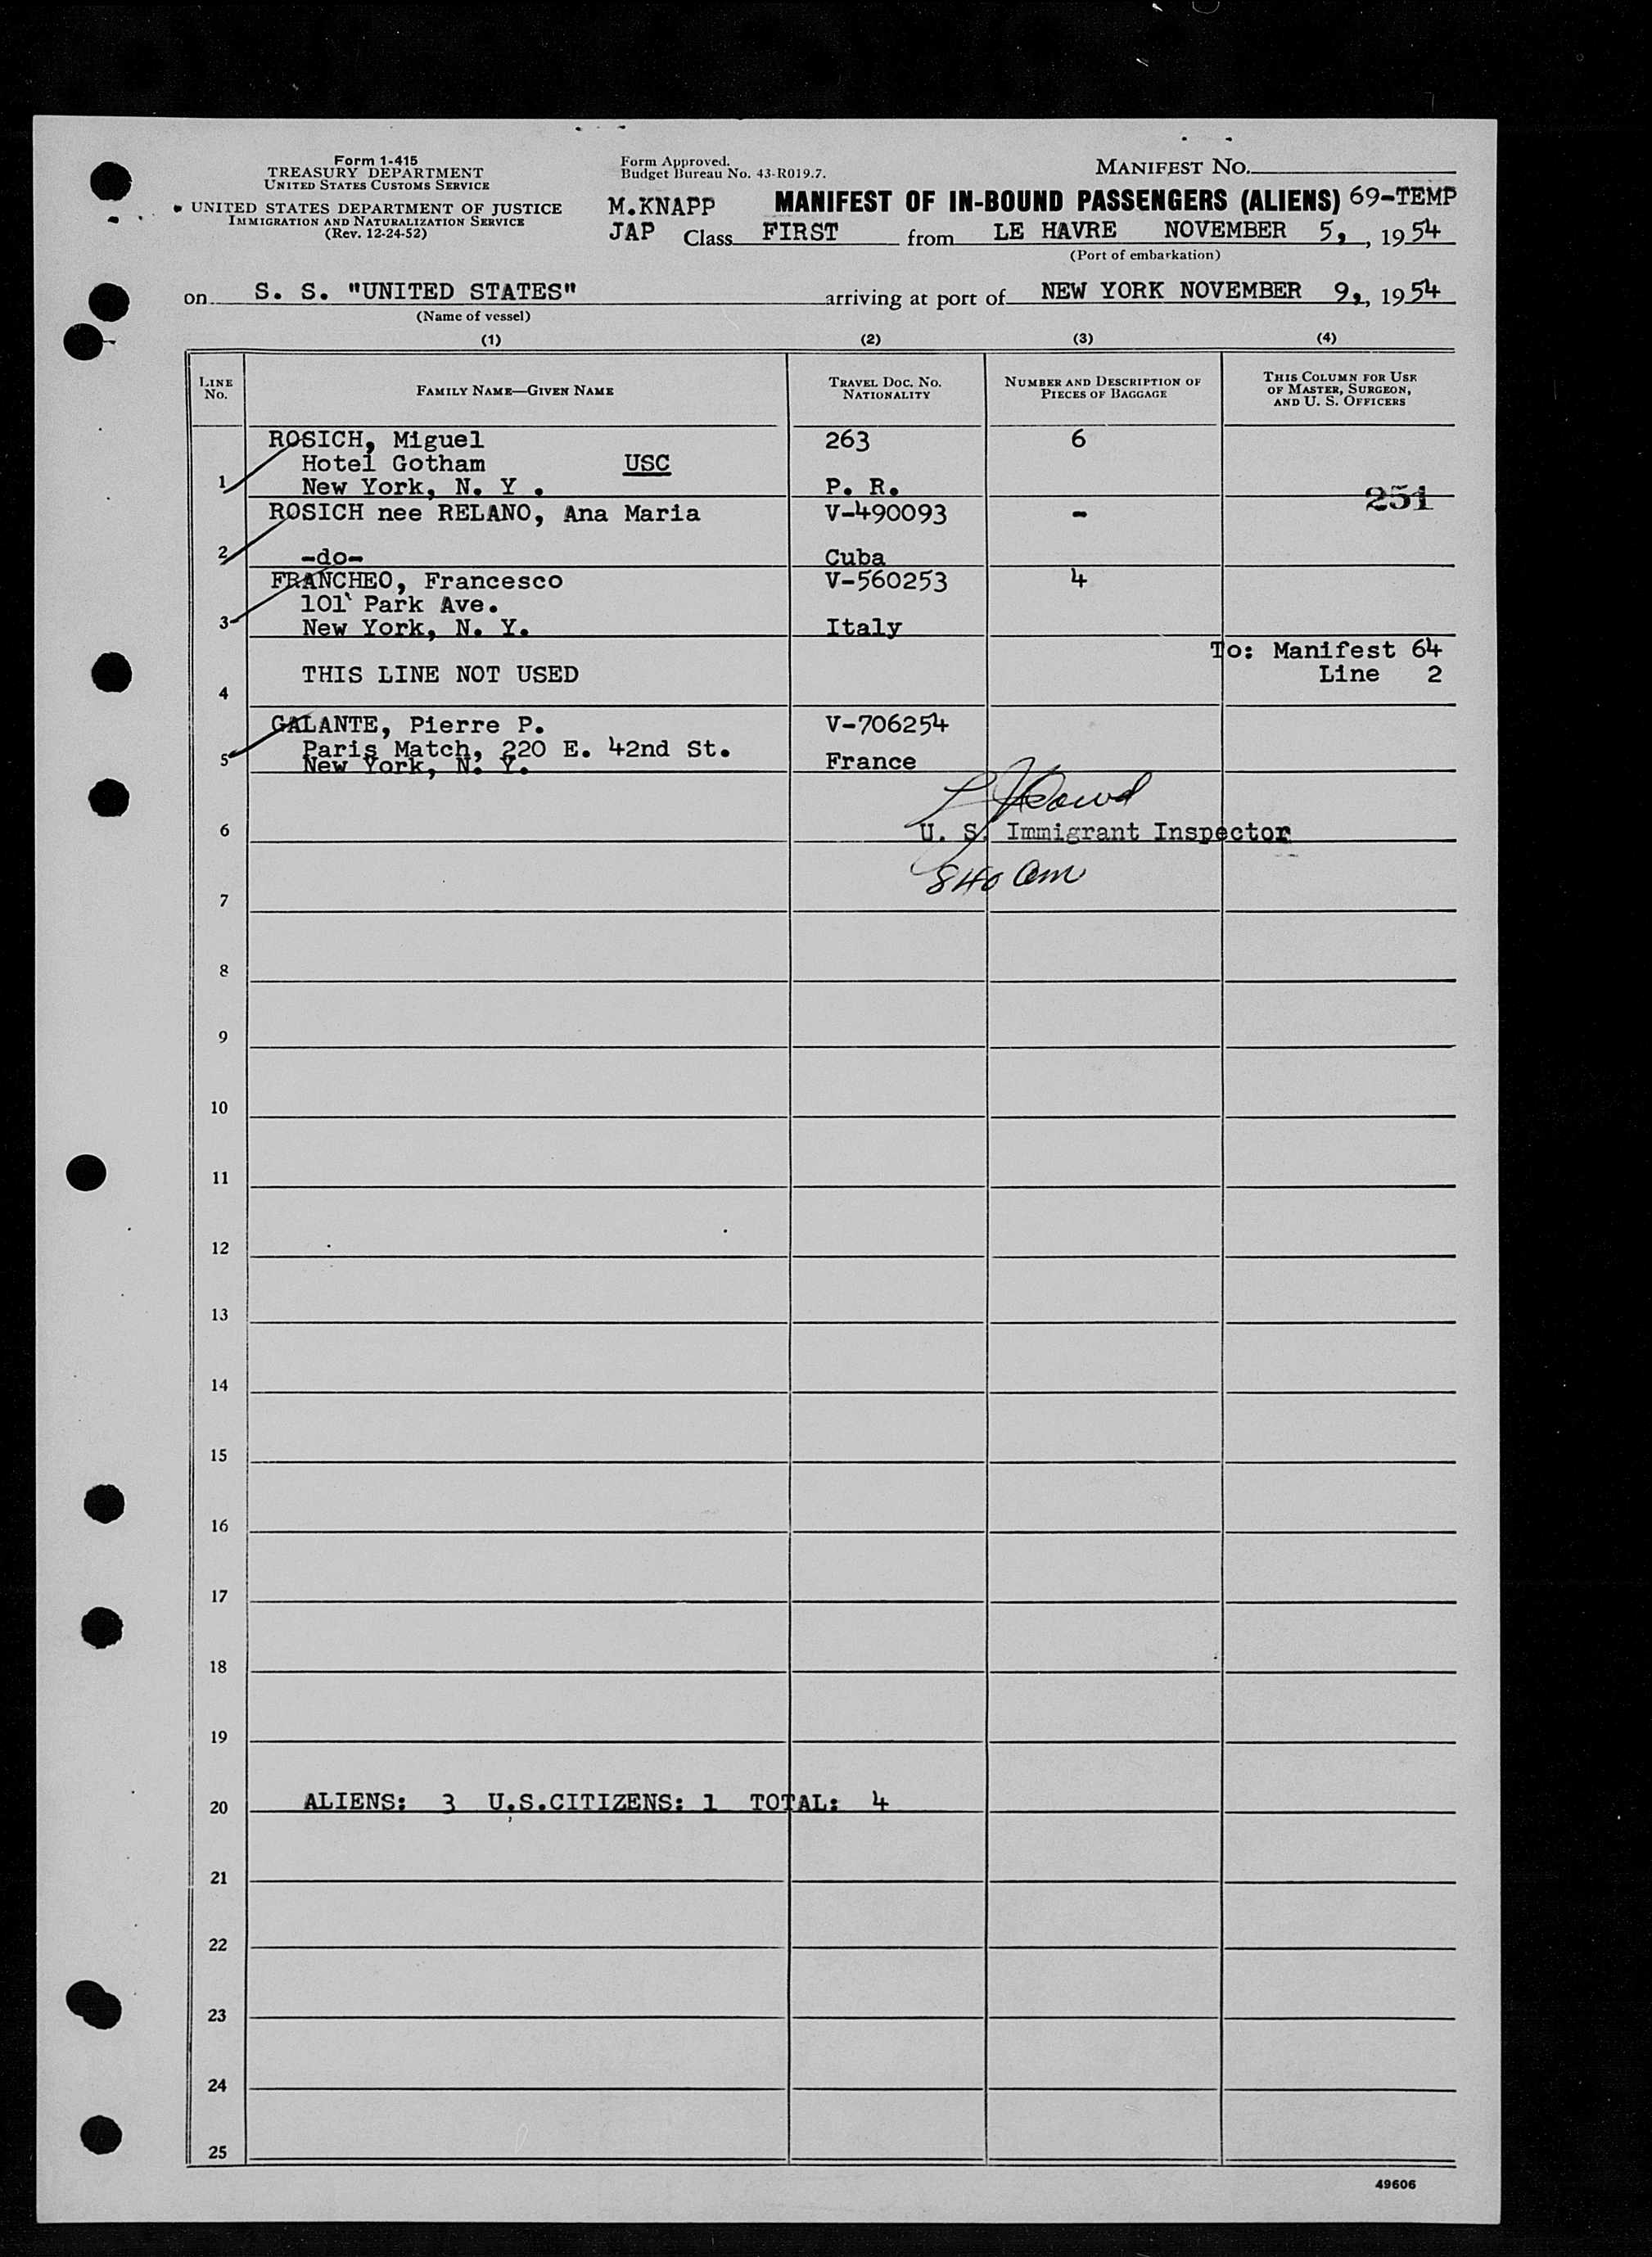 Form 1-415
TREASURY DEPARTMENT
UNITED STATES CUSTOMS SERVICE
UNITED STATES DEPARTMENT OF JUSTICE
IMMIGRATION AND NATURALIZATION SERVICE
(Rev. 12-24-52)
Form Approved.
Budget Bureau No. 43-R019.7.
MANIFEST No.
M.KNAPP MANIFEST OF IN-BOUND PASSENGERS (ALIENS) 69-TEMP
JAP Class FIRST from LE HAVRE NOVEMBER 5, , 1954
(Port of embarkation)
on S. S. "UNITED STATES" arriving at port of NEW YORK NOVEMBER 9, , 1954
(Name of vessel)
(1) (2) (3) (4)
LINE No. FAMILY NAME—GIVEN NAME TRAVEL DOC. No. NATIONALITY NUMBER AND DESCRIPTION OF PIECES OF BAGGAGE THIS COLUMN FOR USE OF MASTER, SURGEON, AND U. S. OFFICERS
ROSICH, Miguel 263 6
Hotel Gotham USC
1 New York, N. Y . P. R.
251
ROSICH nee RELANO, Ana Maria V-490093 -
2 -do- Cuba
FRANCHEO, Francesco V-560253 4
101 Park Ave.
3 New York, N. Y. Italy
To: Manifest 64
THIS LINE NOT USED Line 2
4
GALANTE, Pierre P. V-706254
Paris Match, 220 E. 42nd St.
5 New York, N. Y. France
6 U. S. Immigrant Inspector
840 am
7
8
9
10
11
12
13
14
15
16
17
18
19
20 ALIENS: 3 U.S.CITIZENS: 1 TOTAL: 4
21
22
23
24
25
49606